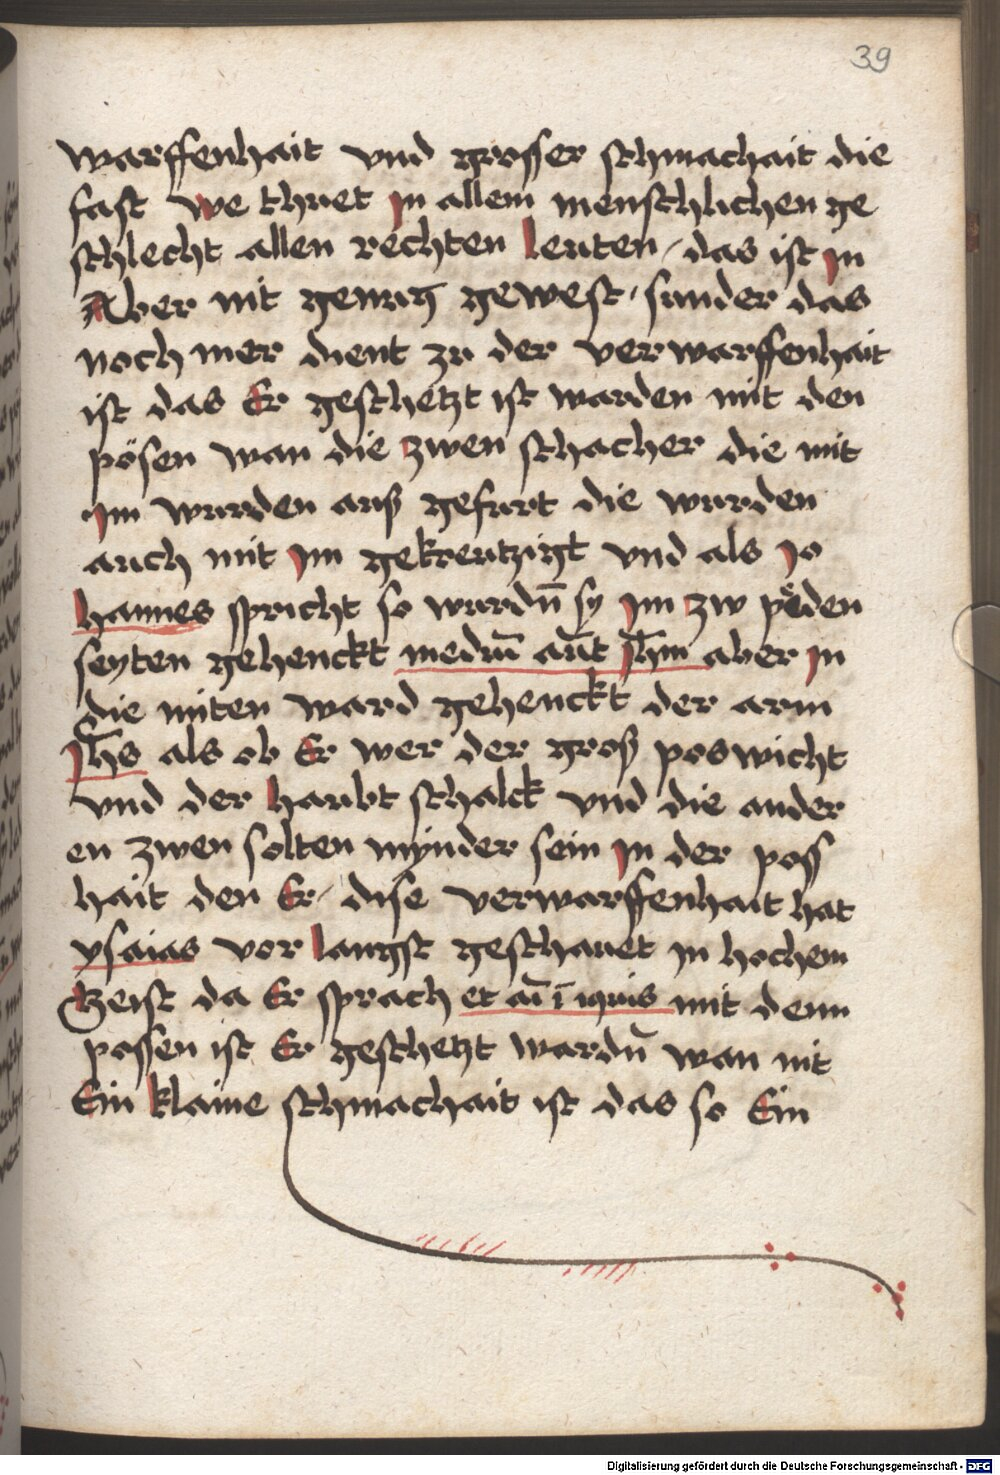 39
warffenhait vnd grosser schmachait die
fast we thuet jn allem menschlichen ge
schlecht allen rechten leuten / das ist jn
Aber nit genug gewest · sunder das
noch mer dient zu der verwarffenhait
ist das Er geschetzt ist warden mit den
pösen wan die zwen schacher die mit
jm wurden auß gefurt die wurden
auch mit jm gekreutzigt vnd als jo
hannes spricht so wurdn̄ sy jm zw peden
seyten gehenckt mediū aūt jh̄m aber jn
die miten ward gehenckt der arm
jh̄s als ob Er wer der groß poswicht
vnd der haubt schalck vnd die ander
en zwen solten mynder sein jn der poss
hait den Er / dise verwarffenhait hat
ysaias vor langst geschauet jn hochem
Geist da Er sprach et cū īiquis mit denn
possen ist Er geschetzt wardn̄ wan nit
Ein klaine schmachait ist das so Ein
Digitalisierung gefördert durch die Deutsche Forschungsgemeinschaft - DFG